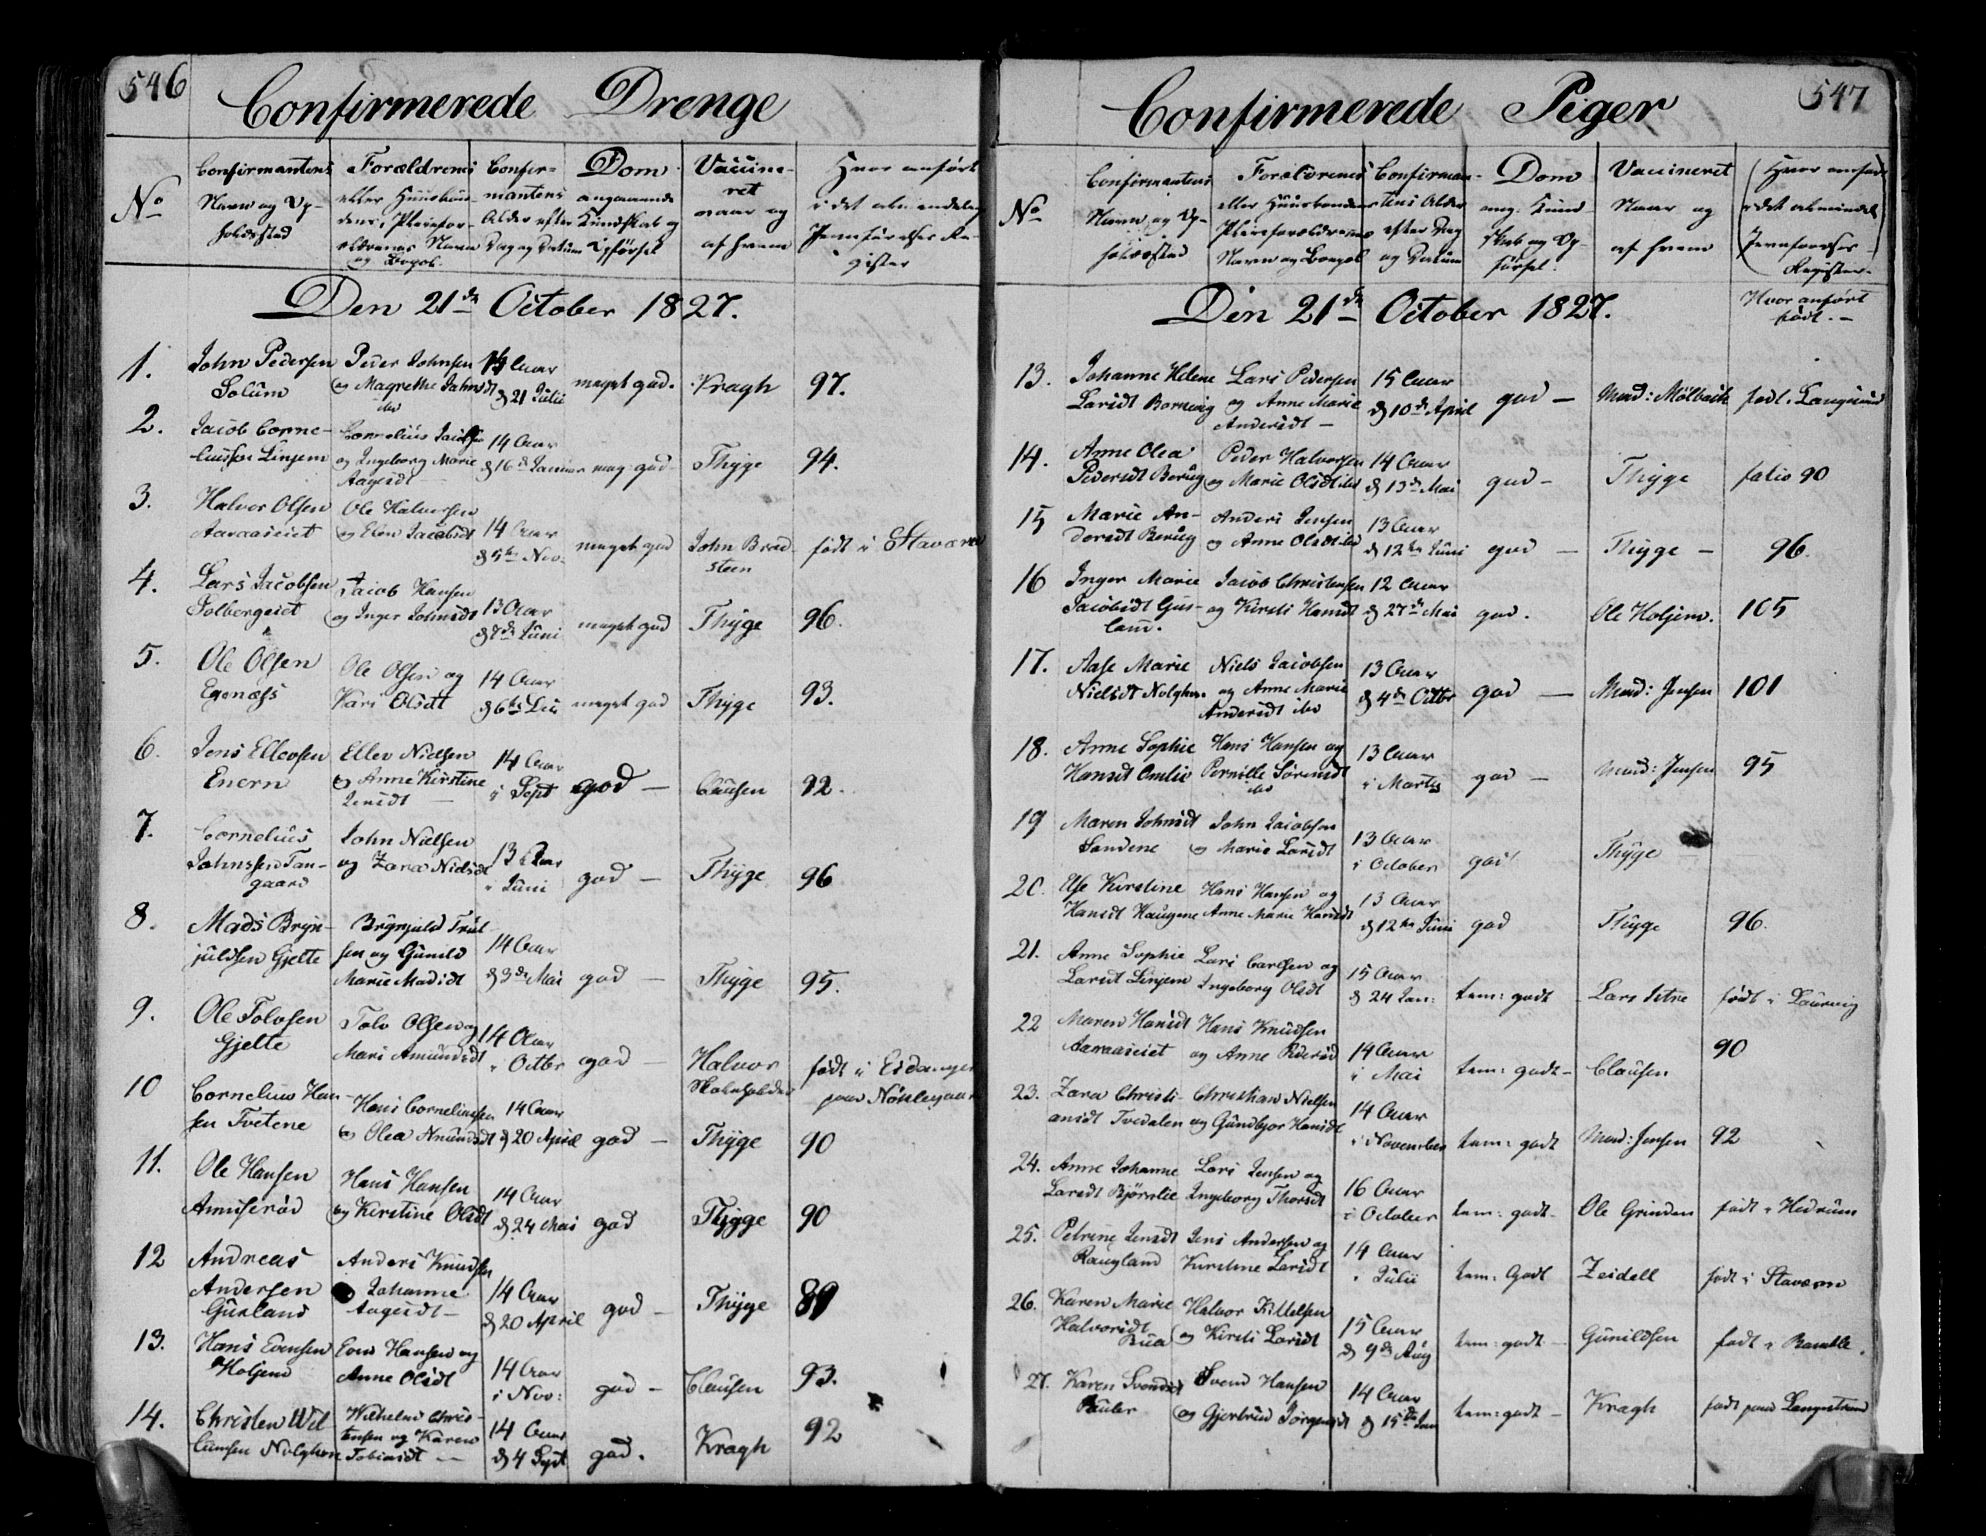 546
Confirmerede Drenge
No
Confirmantens Navn og Opholdsted
Forældrenes eller Huusbondens, Pleieforældrenes Navn og Bopæl
Confirmantens Alder efter Dag og Datum
Dom angaaende Kundskab og Opførsel
Vaccineret naar og af hvem
Hvor anført i det almindelige Jevnførelses Register
Den 21de October 1827.
1. John Pedersen Solum
Peder Johnsen og Magrethe Jahnsdt ibd
14 Aar d 21 Julii
meget god.
Kragh
97.
2. Jacob Corneliussen Linjem
Cornelius Jacobsen og Ingeborg Marie Aagesdt
14 Aar d 16de Januar
meg: god
Thyge
94.
3. Halvor Olsen Aaraaseiet
Ole Halvorsen og Elen Jacobsdt
14 Aar d 5te Nov.
meget god
John Bredsteen
født i Staværn
4. Lars Jacobsen Solbergeiet
Jacob Hansen og Inger Johnsdt
13 Aar d 7de Juni
meget god
Thyge
96.
5. Ole Olsen Egenæss
Ole Olsen og Kari Olsdt
14 Aar d 6te
meget god
Thyge
93.
6. Jens Ellevsen Enern
Ellev Nielsen og Anne Kirstine Jensdt
14 Aar i Sept
god
Clausen
92.
7. Cornelius Johnssen Tangaard
John Nielsen og Zara Nielsdt
13 Aar i Juni
god
Thyge
96
8. Mads Brynjuldsen Gjelte
Brynjuld Trulsen og Gunild Marie Madsdt
14 Aar d 3de Mai
god
Thyge
95.
9. Ole Tolvsen Gjelte
Tolv Olsen og Mari Amundsdt
14 Aar i Octbr
god
Halvor Skoleholder
født i Eidanger paa
10 Cornelius Hansen Tvetene
Hans Corneliussen og Olea Knudsdt
14 Aar d 20 April
god
Thyge
90
11. Ole Hansen Anniserød
Hans Hansen og Kirstine Olsdt
14 Aar d 24 Mai
god
Thyge
90
12 Andreas Andersen Gurland
Anders Knudsen og Johanne Aagesdt
14 Aar d 20 April
god
Thyge
89
13. Hans Evensen Holjem
Even Hansen og Anne Olsdt
14 Aar i Nov:
god
Clausen
93.
14. Christen Willumsen Nolghom
Wilhelm Christensen og Karen Tobiasdt
14 Aar d 4 Sept
god.
Kragh
92
547
Confirmerede Piger
No
Confirmantens Navn og Opholdsted
Forældrenes eller Huusbondens Pleieforældrenes Navn og Boepæl
Confirmantens Alder efter Dag og Datum
Dom ang. Kundskab og Opførsel.
Vaccineret Naar og af hvem
Hvor anført i det almindel. Jevnførelses-Register.
Den 21de October 1827.
Hvor anført født.
13. Johanne Helene Larsdt Bornvig
Lars Pedersen og Anne Marie Andersdt
15 Aar d 10de April
god
Mad: Mølbach
født i Langesund
14. Anne Olea Pedersdt Berug
Peder Halvorsen og Marie Olsdt ibd
14 Aar d 13de Mai
god
Thyge
folio 90
15 Marie Andersdt Berug
Anders Jensen og Anne Olsdt ibd
13 Aar d 12te Juni
god
Thyge
96.
16 Inger Marie Jacobsdt Guslann.
Jacob Christensen og Kirsti Hansdt
12 Aar d 27de Mai
god.
Ole Holjem.
105
17. Aase Marie Nielsdt Nolghom
Niels Jacobsen og Anne Marie Andersdt ibd
13 Aar d 4de Octbr
god
Mad: Jensen
101
18. Anne Sophie Hansdt Omlie
Hans Hansen og Pernille Sørensdt ibd
13 Aar i Martz
god
Mad: Jensen
95
19 Maren Johnsdt Sandene
John Jacobsen og Marie Larsdt
13 Aar i October
god
Thyge
20. Else Kirstine Hansdt Haugene
Hans Hansen og Anne Marie Hansdt
13 Aar d 12te Juni
god
Thyge
96.
21. Anne Sophie Larsdt Linjem
Lars Carlsen og Ingeborg Olsdt
15 Aar d 24 Jan:
tem: godt
Lars Istre
født i Laurvig
22 Maren Hansdt Aaraaseiet
Hans Knudsen og Anne Pedersd
14 Aar i Mai
tem: godt
Clausen
90
23. Zara Christiansdt Tvedalen
Christian Nielsen og Gundbjor Hansdt
14 Aar i November
tem: godt
Mad: Jensen
92
24. Anne Johanne Larsdt Bjørnlie
Lars Jensen og Ingeborg Thorsdt
16 Aar i October
tem: godt
Ole Grinden
født i Hedrum
25. Petrine Jensdt Raugland
Jens Andersen og Kirstine Larsdt
14 Aar i Julii
tem: Godt
Zeidell
født i Staværn
26. Karen Marie Halvorsdt Rua
Halvor Kittelsen og Kirsti Larsdt
15 Aar d 9de Aug
tem: godt
Gunildsen
født i Bamble.
27. Karen Svendsdt
Svend Hansen og Gjertrud Jørgensdt
14 Aar d 15de Jan
tem: godt
Kragh
født paa Langestrand